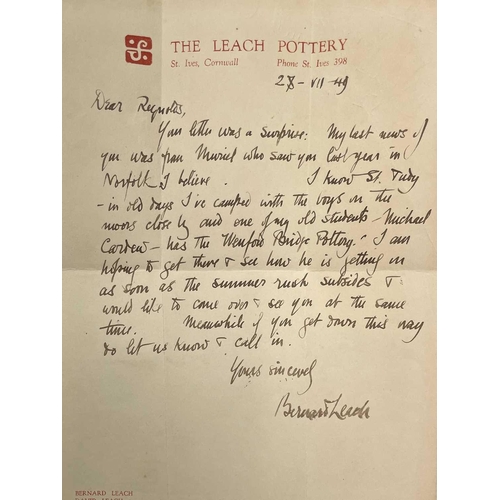 THE LEACH POTTERY
St. Ives, Cornwall Phone St. Ives 398
28-VII-49
Dear Reynolds,
Your letter was a surprise: My last news of
you was from Muriel who saw you last year in
Norfolk I believe. I know St. Tudy
- in old days I've camped with the boys on the
moors close by and one of my old students - Michael
Cardew - has the Wenford Bridge Pottery. I am
hoping to get there & see how he is getting on
as soon as the summer rush subsides &
would like to come over & see you at the same
time. Meanwhile if you get down this way
do let us know & call in.
Yours sincerely
Bernard Leach
BERNARD LEACH